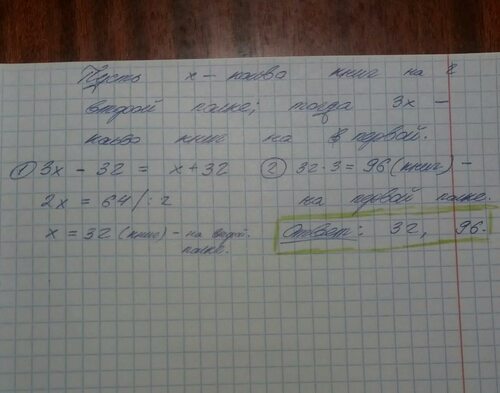 Пусть x – кол-во книг на
второй полке; тогда 3x –
кол-во книг на первой.
① 3x – 32 = x + 32
2x = 64 /: 2
x = 32 (книг) – на второй полке.
② 32 · 3 = 96 (книг) –
на первой полке.
Ответ: 32, 96.